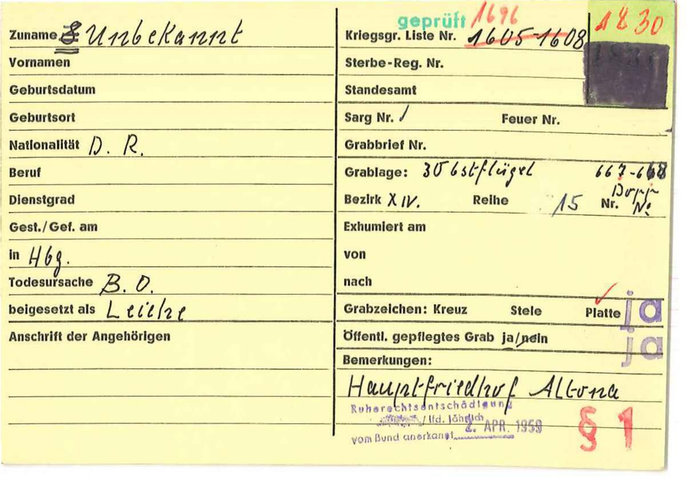 geprüft 1696
1830
Zuname Unbekannt
Kriegsgr. Liste Nr. 1605-1608
Vornamen
Sterbe-Reg. Nr.
Geburtsdatum
Standesamt
Geburtsort
Sarg Nr. 1 Feuer Nr.
Nationalität D. R.
Grabbrief Nr.
Beruf
Grablage: 667-668
Dienstgrad
Bezirk XIV. Reihe 15 Nr.
Gest./Gef. am
Exhumiert am
in Hbg.
von
Todesursache B. O.
nach
beigesetzt als Leiche
Grabzeichen: Kreuz Stele Platte ja
Anschrift der Angehörigen
Öffentl. gepflegtes Grab ja/nein ja
Bemerkungen:
Hauptfriedhof Altona
Ruherechtsentschädigung
/ lfd. jährlich
vom Bund anerkannt 2. APR. 1959
§ 1